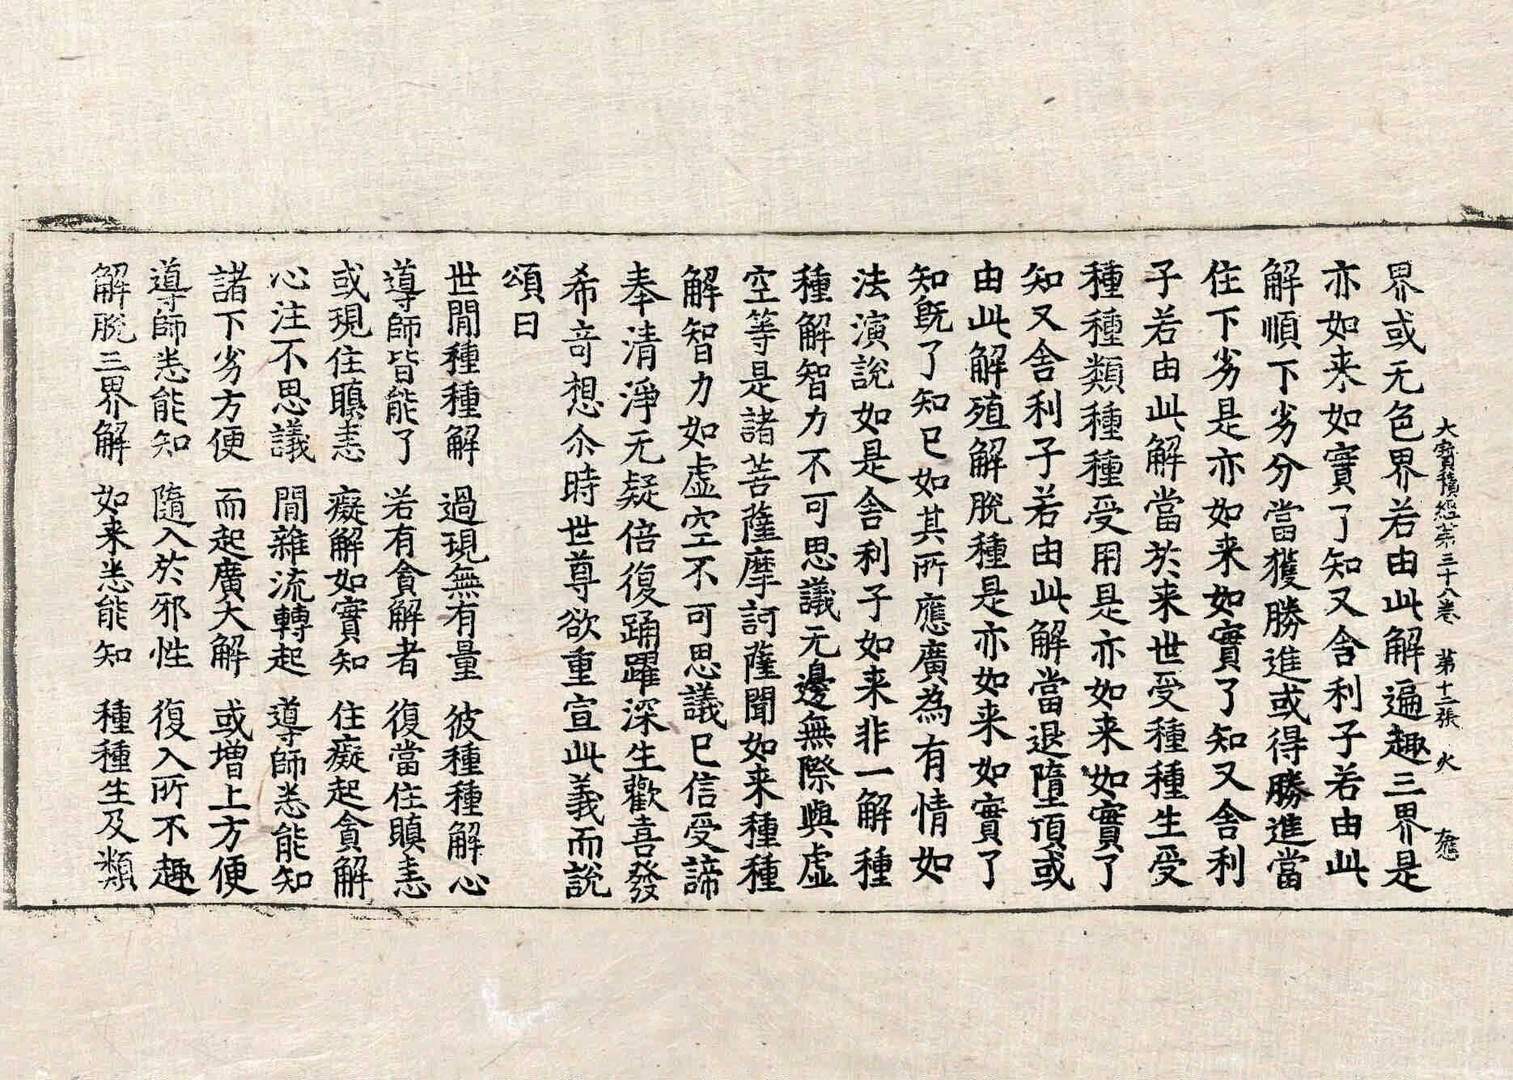 大寶積經第三十八卷　第十二張　火　應
界或无色界若由此解遍趣三界是
亦如来如實了知又舍利子若由此
解順下劣分當獲勝進或得勝進當
住下劣是亦如来如實了知又舍利
子若由此解當於来世受種種生受
種種類種種受用是亦如来如實了
知又舍利子若由此解當退墮頂或
由此解殖解脫種是亦如来如實了
知旣了知已如其所應廣為有情如
法演說如是舍利子如来非一解種
種解智力不可思議无邊無際與虛
空等是諸菩薩摩訶薩聞如来種種
解智力如虛空不可思議已信受諦
奉清淨无疑倍復踊躍深生歡喜發
希奇想尒時世尊欲重宣此義而說
頌曰
世間種種解　過現無有量　彼種種解心
導師皆能了　若有貪解者　復當住瞋恚
或現住瞋恚　癡解如實知　住癡起貪解
心注不思議　間雜流轉起　導師悉能知
諸下劣方便　而起廣大解　或增上方便
導師悉能知　隨入於邪性　復入所不趣
解脫三界解　如来悉能知　種種生及類